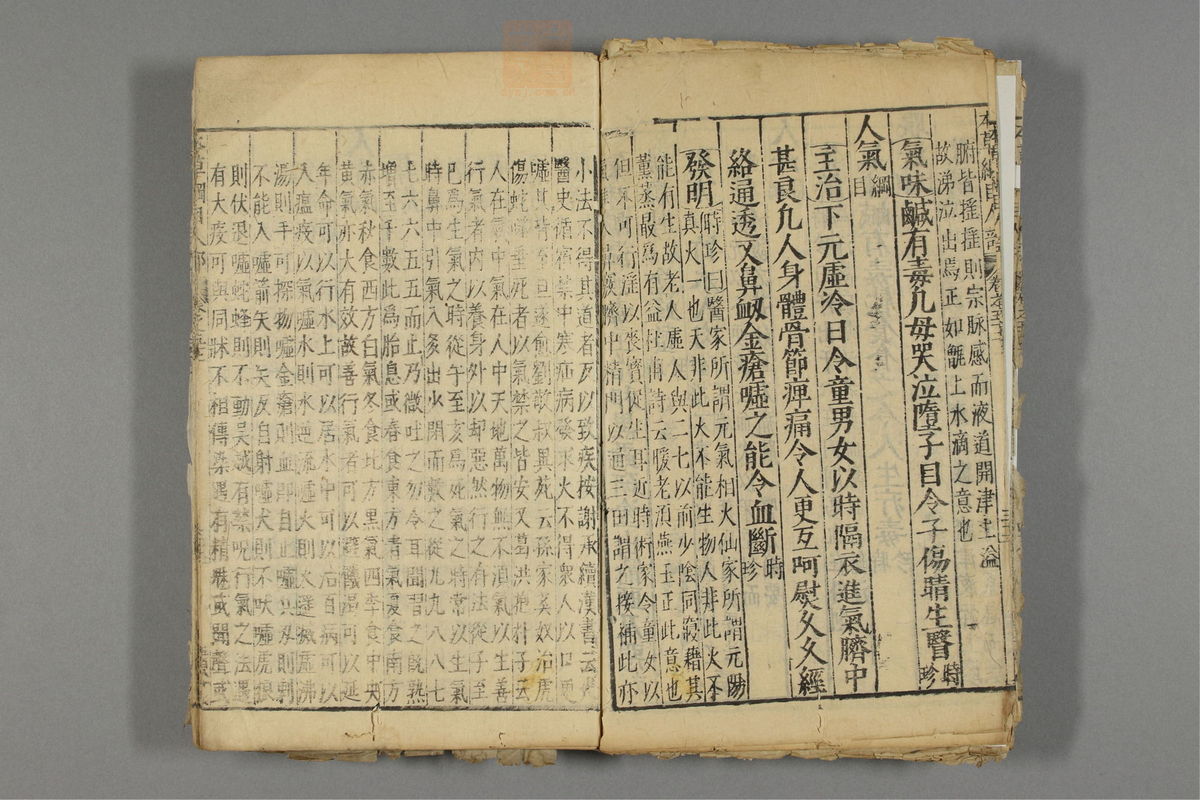 腑皆搖搖則宗脉感而液道開津上溢
故涕泣出焉正如甑上水滴之意也
氣味鹹有毒凡母哭泣墮子目令子傷睛生瞖時珍
人氣綱目
主治下元虛冷日令童男女以時隔衣進氣臍中
甚良凡人身體骨節痺痛令人更互呵熨久久經
絡通透又鼻衂金瘡噓之能令血斷時珍
發明時珍曰醫家所謂元氣相火仙家所謂元陽
真火一也天非此火不能生物人非此火不
能有生故老人虛人與二七以前少陰同寢藉其
薰蒸最為有益杜甫詩云暖老須燕玉正此意也
但不可行淫以喪寶促生耳近時術家令童女以
氣進入鼻竅臍中精門以通三田謂之接補此亦
小法不得其道者反以致疾按謝承續漢書云
醫史循宿禁中寒疝病發求火不得衆人以口更
噓其背至旦遂愈劉敬叔異苑云孫家奚奴治虎
傷蛇噬垂死者以氣禁之皆安又葛洪抱朴子云
人在氣中氣在人中天地萬物無不須氣以生善
行氣者內以養身外以却惡然行之有法從子至
巳為生氣之時從午至亥為死氣之時常以生氣
時鼻中引氣入多出少閉而數之從九九八八七
七六六五五而止乃微吐之勿令耳聞習之既熟
增至千數此為胎息或春食東方青氣夏食南方
赤氣秋食西方白氣冬食北方黑氣四季食中央
黃氣亦大有效故善行氣者可以避饑渴可以延
年命可以行水上可以居水中可以治百病可以
入瘟疫以氣噓水則水逆流噓火則火遙滅噓沸
湯則手可探物噓金瘡則血即自止噓兵刃則刺
不能入噓箭矢則矢反自射噓犬則不吠噓虎狼
則伏退噓蛇蜂則不動吳越有禁呪行氣之法遇
有大疫可與同牀不相傳染遇有精魅或聞聲或